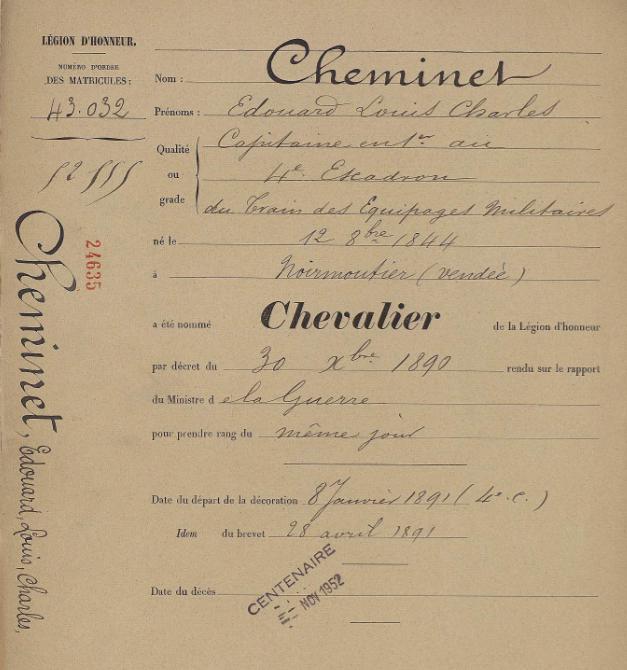 LÉGION D'HONNEUR.
NUMÉRO D'ORDRE
DES MATRICULES:
43.032
24635
Cheminet, Edouard, Louis, Charles,
Nom : Cheminet
Prénoms : Edouard Louis Charles
Qualité ou grade
Capitaine en 1er au
4e Escadron
du Train des Equipages Militaires
né le 12 8bre 1844
à Noirmoutier (vendée)
a été nommé Chevalier de la Légion d'honneur
par décret du 30 Xbre 1890 rendu sur le rapport
du Ministre de la Guerre
pour prendre rang du même jour
Date du départ de la décoration 8 Janvier 1891 (4e. C.)
Idem du brevet 28 avril 1891
CENTENAIRE
NOV 1952
Date du décès